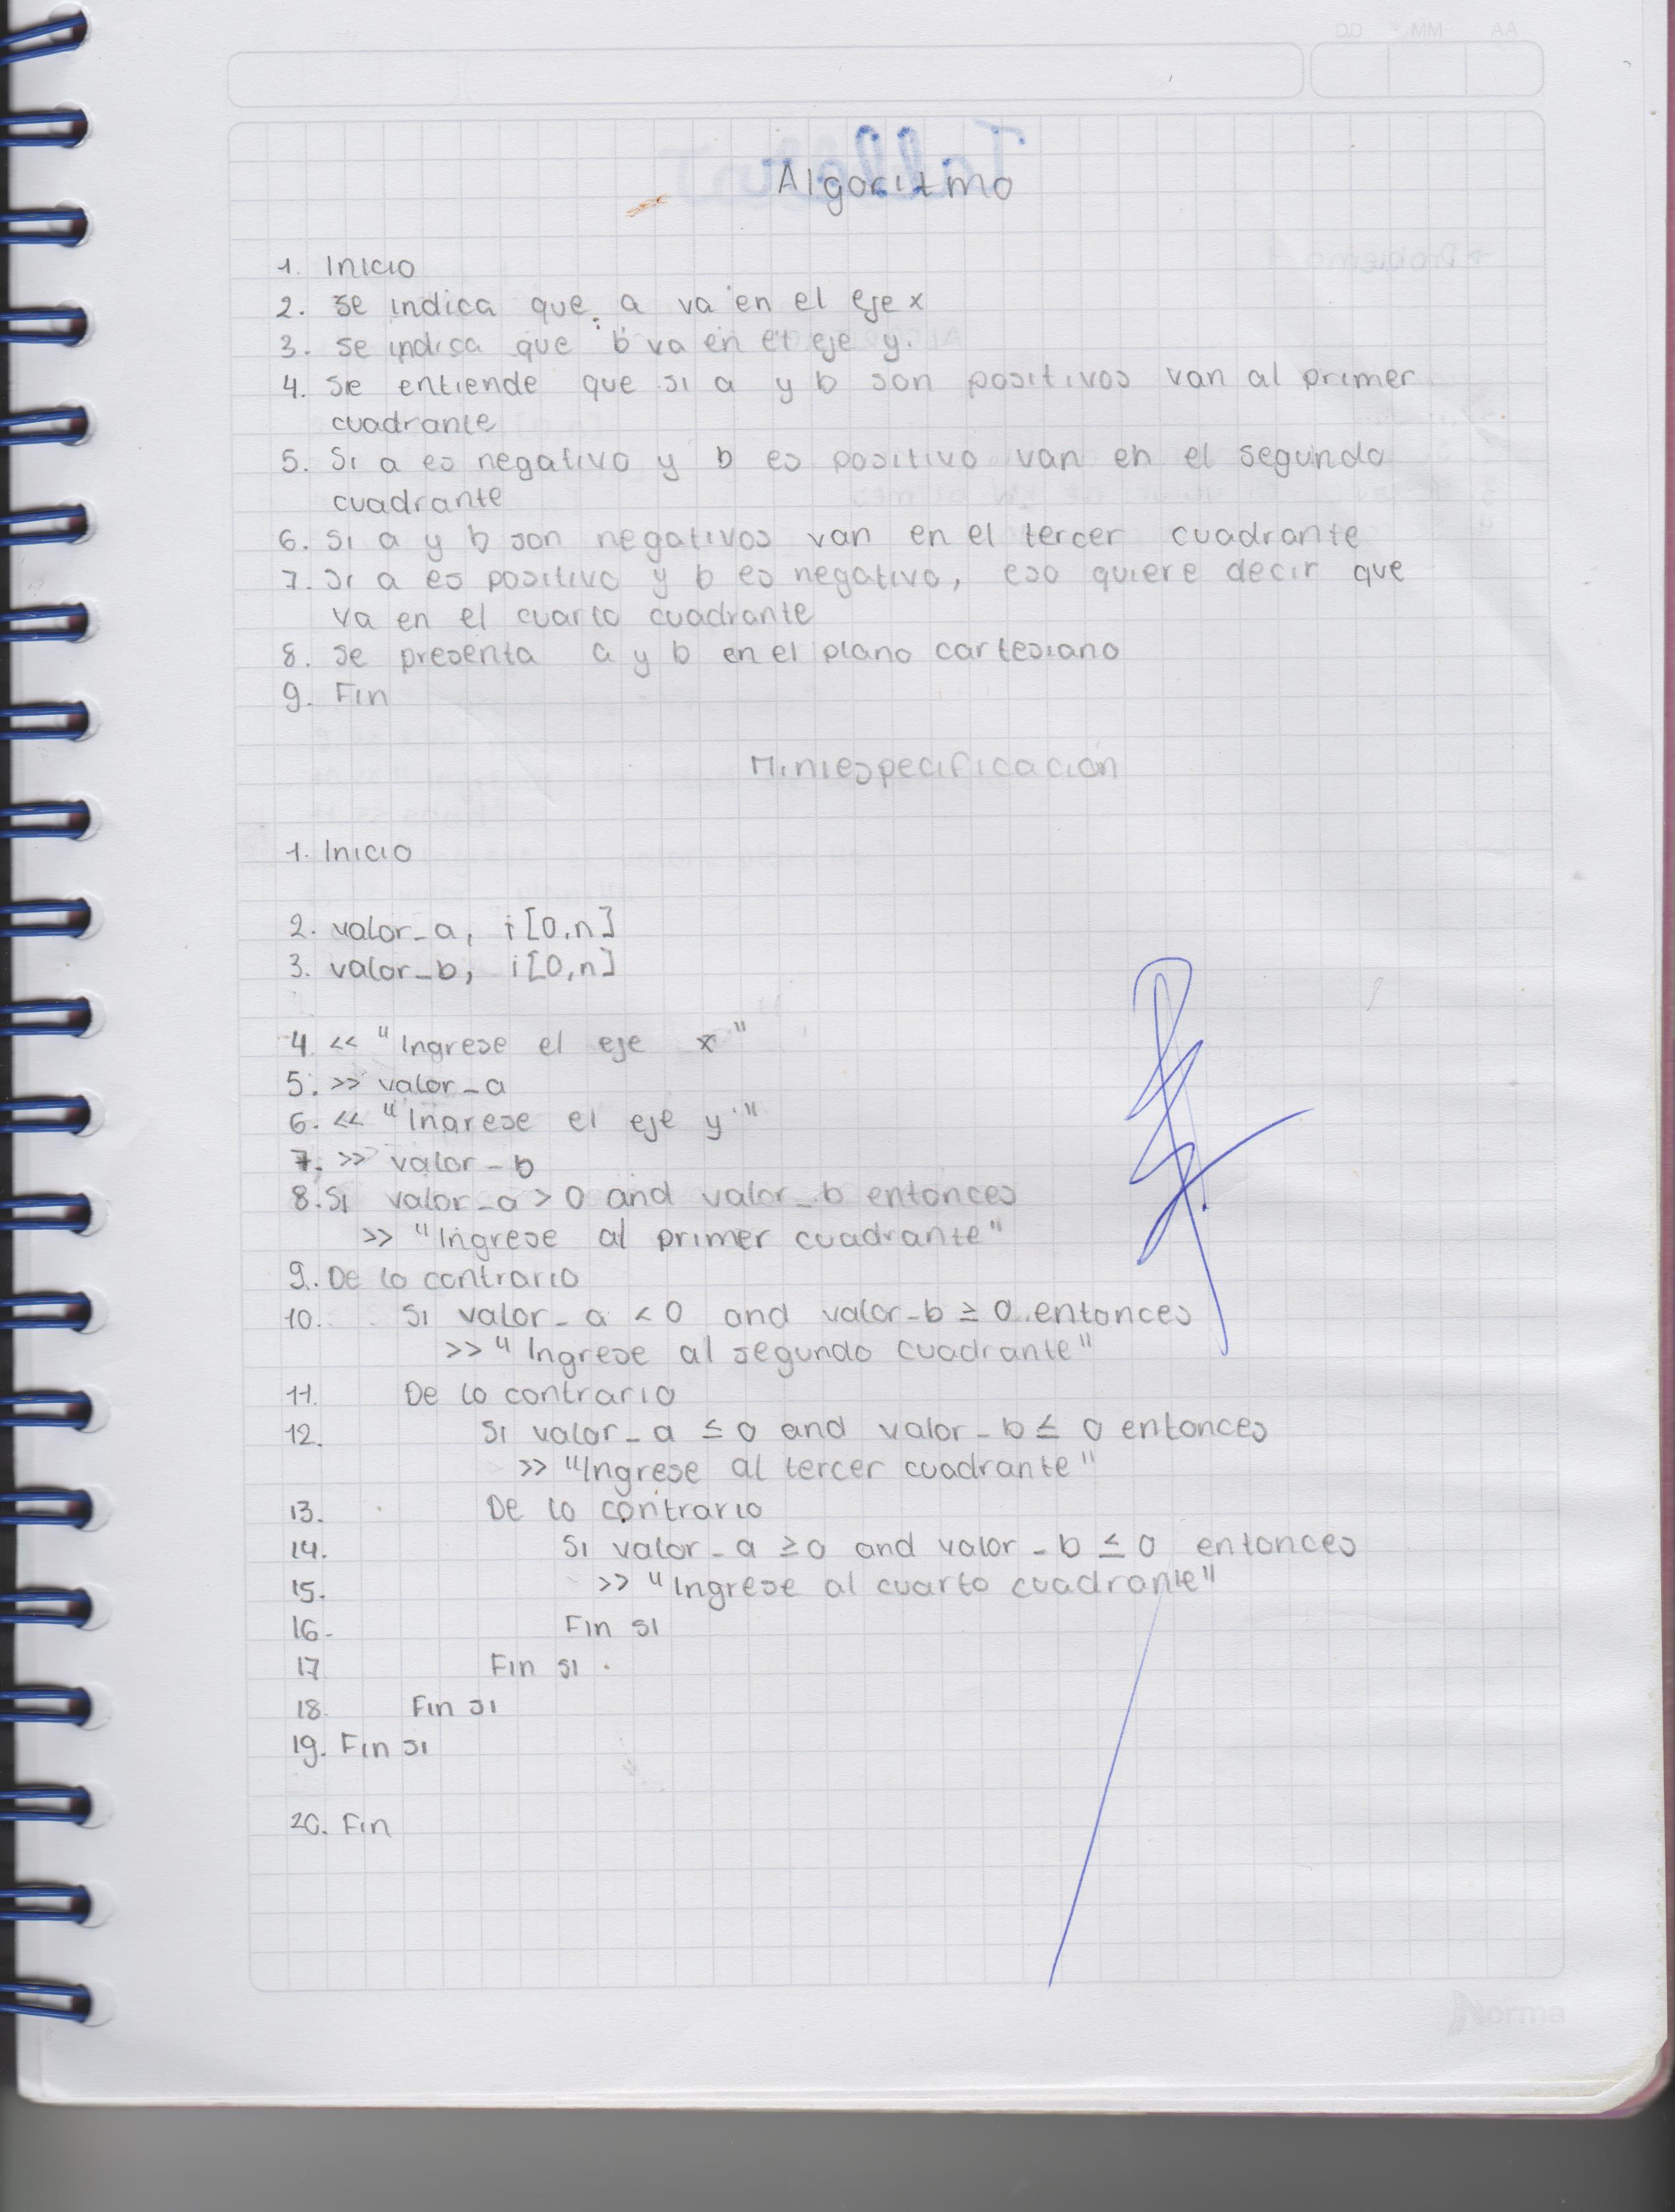 DD MM AA
Algoritmo
1. Inicio
2. Se indica que a va en el eje x
3. Se indica que b va en el eje y.
4. Se entiende que si a y b son positivos van al primer
cuadrante
5. Si a es negativo y b es positivo van en el segundo
cuadrante
6. Si a y b son negativos van en el tercer cuadrante
7. Si a es positivo y b es negativo, eso quiere decir que
va en el cuarto cuadrante
8. Se presenta a y b en el plano cartesiano
9. Fin
Miniespecificación
1. Inicio
2. valor_a, i[0,n]
3. valor_b, i[0,n]
4. << "Ingrese el eje x"
5. >> valor_a
6. << "Ingrese el eje y"
7. >> valor_b
8. Si valor_a > 0 and valor_b entonces
>> "Ingrese al primer cuadrante"
9. De lo contrario
10. Si valor_a < 0 and valor_b ≥ 0 entonces
>> "Ingrese al segundo cuadrante"
11. De lo contrario
12. Si valor_a ≤ 0 and valor_b ≤ 0 entonces
>> "Ingrese al tercer cuadrante"
13. De lo contrario
14. Si valor_a ≥ 0 and valor_b ≤ 0 entonces
15. >> "Ingrese al cuarto cuadrante"
16. Fin si
17 Fin si
18. Fin si
19. Fin si
20. Fin
Norma